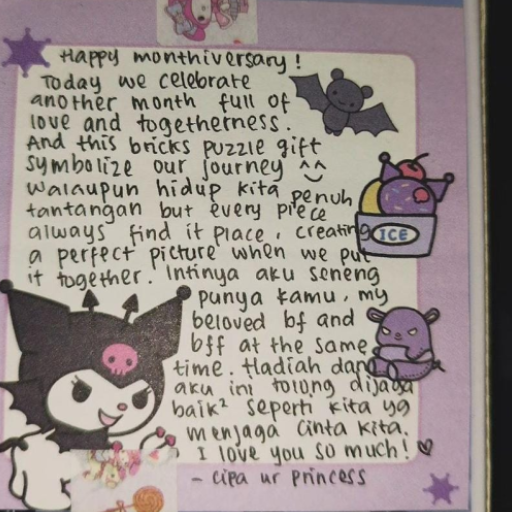 Happy monthiversary!
Today we celebrate
another month full of
love and togetherness.
And this bricks puzzle gift
symbolize our journey ^^
walaupun hidup kita penuh
tantangan but every piece
always find it place, creating
a perfect picture when we put
it together. Intinya aku seneng
punya kamu, my
beloved bf and
bff at the same
time. Hadiah dari
aku ini tolong dijaga
baik² seperti kita yg
menjaga cinta kita.
I love you so much! ♡
- cipa ur princess
ICE